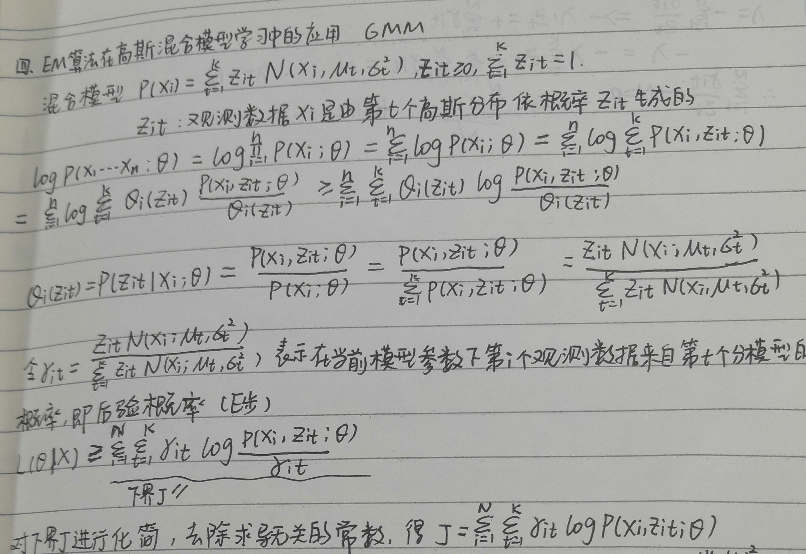 四. EM算法在高斯混合模型学习中的应用 GMM
混合模型 P(Xi) = ∑_{t=1}^{K} Zit N(Xi, μt, σt²), Zit≥0, ∑_{t=1}^{K} Zit = 1.
Zit : 观测数据 Xi 是由第t个高斯分布依概率 Zit 生成的
log P(X₁…Xn ; θ) = log ∏_{i=1}^{n} P(Xi ; θ) = ∑_{i=1}^{n} log P(Xi ; θ) = ∑_{i=1}^{n} log ∑_{t=1}^{K} P(Xi, Zit ; θ)
= ∑_{i=1}^{n} log ∑_{t=1}^{K} Qi(Zit) P(Xi, Zit ; θ) / Qi(Zit) ≥ ∑_{i=1}^{n} ∑_{t=1}^{K} Qi(Zit) log P(Xi, Zit ; θ) / Qi(Zit)
Qi(Zit) = P(Zit | Xi ; θ) = P(Xi, Zit ; θ) / P(Xi ; θ) = P(Xi, Zit ; θ) / ∑_{t=1}^{K} P(Xi, Zit ; θ) = Zit N(Xi ; μt, σt²) / ∑_{t=1}^{K} Zit N(Xi, μt, σt²)
令 γit = Zit N(Xi ; μt, σt²) / ∑_{t=1}^{K} Zit N(Xi, μt, σt²) 表示在当前模型参数下第i个观测数据来自第t个分模型的
概率, 即后验概率 (E步)
L(θ|X) ≥ ∑_{i=1}^{N} ∑_{t=1}^{K} γit log P(Xi, Zit ; θ) / γit
下界J
对下界J进行化简, 去除求导无关的常数, 得 J = ∑_{i=1}^{N} ∑_{t=1}^{K} γit log P(Xi, Zit ; θ)